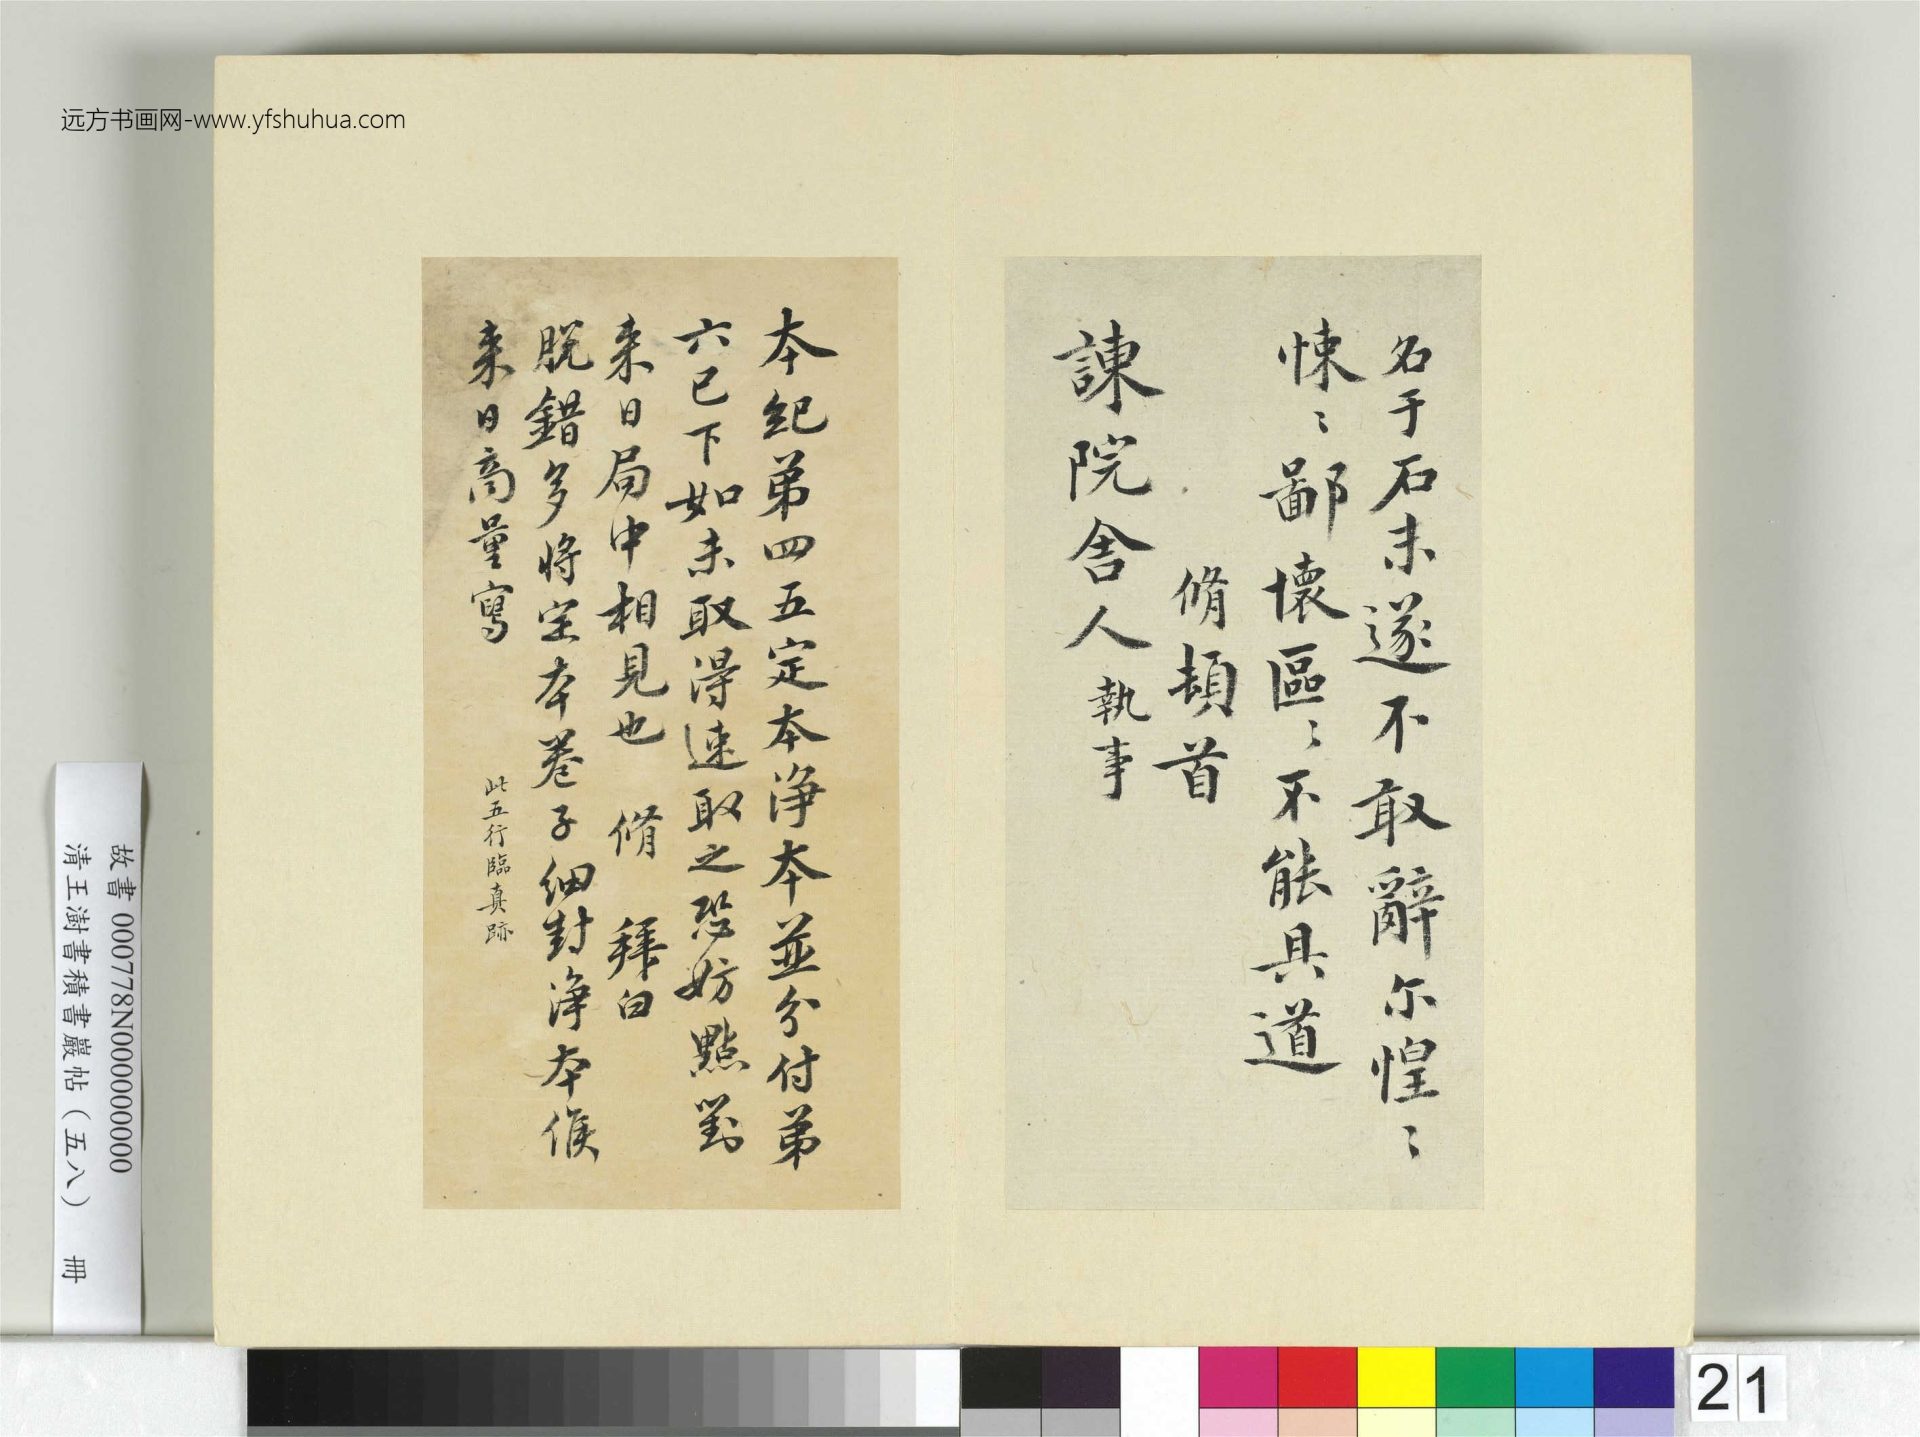 远方书画网-www.yfshuhua.com
名于石未遂不敢辭尔惶〻
悚〻鄙懷區〻不能具道
脩頓首
諫院舍人執事
本紀第四五定本淨本並分付第
六已下如未取得速取之恐妨點對
来日局中相見也 脩 拜白
脱錯多將定本卷子細對淨本候
来日商量寫
此五行臨真跡
故書 000778N000000000
清王澍書積書巖帖（五八） 冊
21